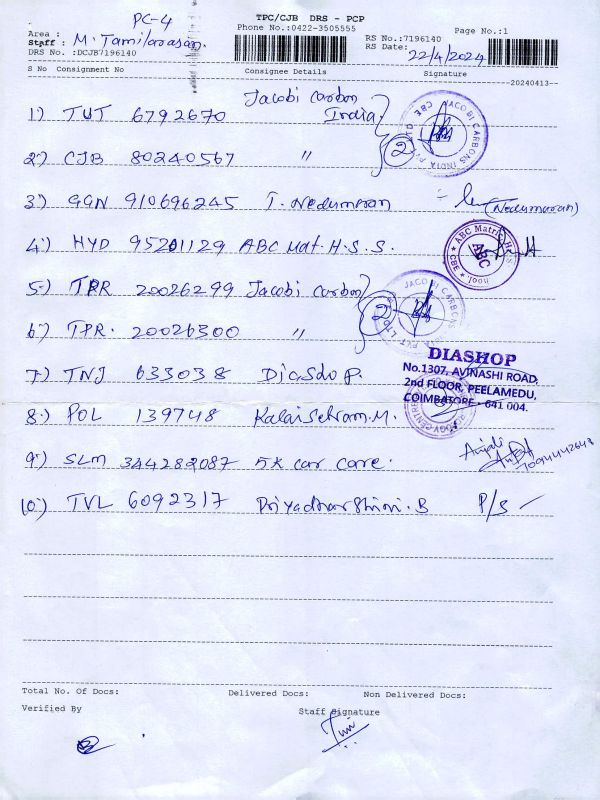 PC-4
TPC/CJB DRS - PCP
Phone No.:0422-3505555
Page No.:1
Area :
Staff : M. Tamilarasan.
DRS No. :DCJB7196140
RS No.:7196140
RS Date: 22/4/2024
S No Consignment No Consignee Details Signature
20240413
1) TUT 6792670 Jacobi Carbon India
2) CJB 80240567 〃 2
3) GGN 910696245 T. Nedumaran (Nedumaran)
4) HYD 95201129 ABC Mat. H.S.S.
5) TPR 20026299 Jacobi Carbon
6) TPR. 20026300 〃 2
7) TNJ 633038 Diashop.
8) POL 139748 Kalaiselvam.M.
9) SLM 344282087 5K Car Care. Anjali
10) TVL 6092317 Priyadharshini.B P/S
JACOBI CARBONS INDIA PVT LTD CBE
ABC Matric H S School CBE
ABC
JACOBI CARBONS
DIASHOP
No.1307, AVINASHI ROAD,
2nd FLOOR, PEELAMEDU,
COIMBATORE - 641 004.
Total No. Of Docs: Delivered Docs: Non Delivered Docs:
Verified By Staff Signature